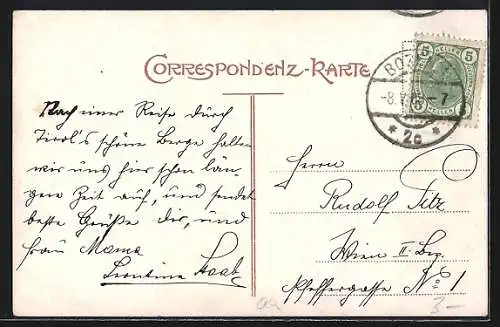 CORRESPONDENZ-KARTE
Nach einer Reise durch
Tirol's schöne Berge halten
wir uns hier schon län-
gere Zeit auf, und sendet
beste Grüße dir, und
Frau Mama
Leontine Staab
5 HELLER 5
BOZ
-8. -7
* 2c *
Herrn
Rudolf Titz
Wien II. Bez.
Pfeffergasse No 1
3-